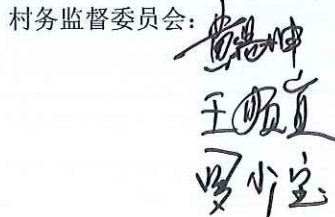 村务监督委员会：黄
王顺宜
罗小宝